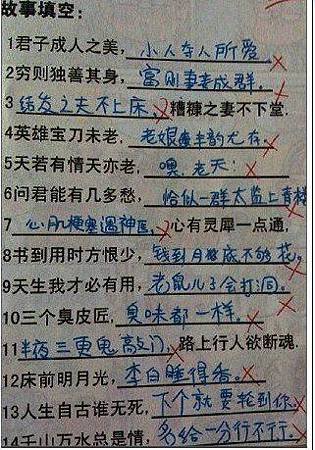 故事填空：
1君子成人之美，小人夺人所爱
2穷则独善其身，富则妻妾成群。
3结发之夫不上床，糟糠之妻不下堂．
4英雄宝刀未老，老娘丰韵尤存。
5天若有情天亦老，噢，老天！
6问君能有几多愁，恰似一群太监上青楼
7心肌梗塞遇神医，心有灵犀一点通，
8书到用时方恨少，钱到月底不够花。
9天生我才必有用，老鼠儿子会打洞。
10三个臭皮匠，臭味都一样。
11半夜三更鬼敲门，路上行人欲断魂．
12床前明月光，李白睡得香。
13人生自古谁无死，下个就要轮到你
14千山万水总是情，多给一分行不行。